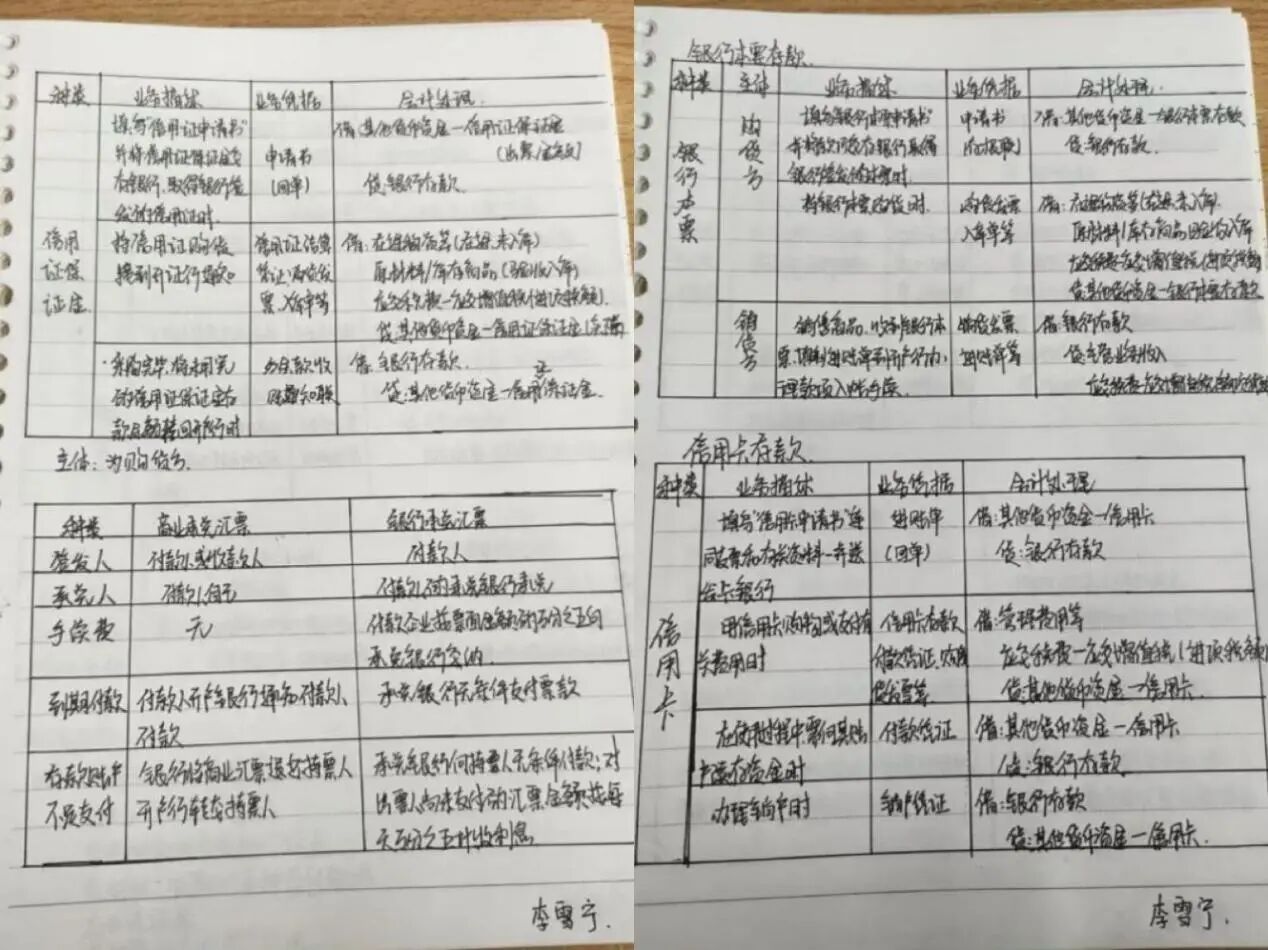 种类 业务描述 业务凭据 会计处理
填写"信用证申请书" 借:其他货币资金—信用证保证金
并将信用证保证金交 申请书 (出票金额)
存银行,取得银行签 (回单) 贷:银行存款
发的信用证时
信用证保证金
持信用证购货 信用证结算 借:在途物资等(在途,未入库)
接到开证行通知 凭证,购货发 原材料/库存商品(验收入库)
票,入库单等 应交税费—应交增值税(进项税额)
贷:其他货币资金—信用证保证金
采购完毕,将未用完 余款收 借:银行存款
的信用证保证金存 账通知联 贷:其他货币资金—信用证保证金
款余额转回开户行时
主体:为购货方
种类 商业承兑汇票 银行承兑汇票
签发人 付款人或收款人 付款人
承兑人 付款人自己 付款人向承兑银行承兑
手续费 无 付款企业按票面金额的万分之五向
承兑银行交纳
到期付款 付款人开户银行通知付款人 承兑银行无条件支付票款
付款
存款账户 银行将商业汇票退给持票人 承兑银行向持票人无条件付款;对
不足支付 开户行转交持票人 出票人尚未支付的汇票金额按每
天万分之五计收利息
李雪宁
银行本票存款
种类 主体 业务描述 业务凭据 会计处理
银行本票
购货方
填写"银行本票申请书" 申请书 借:其他货币资金—银行本票存款
并将款项交存银行取得 (存根联) 贷:银行存款
银行签发的本票时
持银行本票购货时 购货发票 借:在途物资等(在途,未入库)
入库单等 原材料/库存商品(验收入库)
应交税费—应交增值税(进项税额)
贷:其他货币资金—银行本票存款
销货方
销售商品,收到银行本 销货发票 借:银行存款
票,填制进账单到开户行办 进账单等 贷:主营业务收入
理款项入账手续 应交税费—应交增值税
信用卡存款
种类 业务描述 业务凭据 会计处理
信用卡
填写"信用卡申请书"连 进账单 借:其他货币资金—信用卡
同支票和有关资料一并送 (回单) 贷:银行存款
发卡银行
用信用卡购物或支付有 信用卡存款 借:管理费用等
关费用时 付款凭证,购货 应交税费—应交增值税(进项税额)
发票等 贷:其他货币资金—信用卡
在使用过程中需向其账 付款凭证 借:其他货币资金—信用卡
户续存资金时 贷:银行存款
办理销户时 销户凭证 借:银行存款
贷:其他货币资金—信用卡
李雪宁